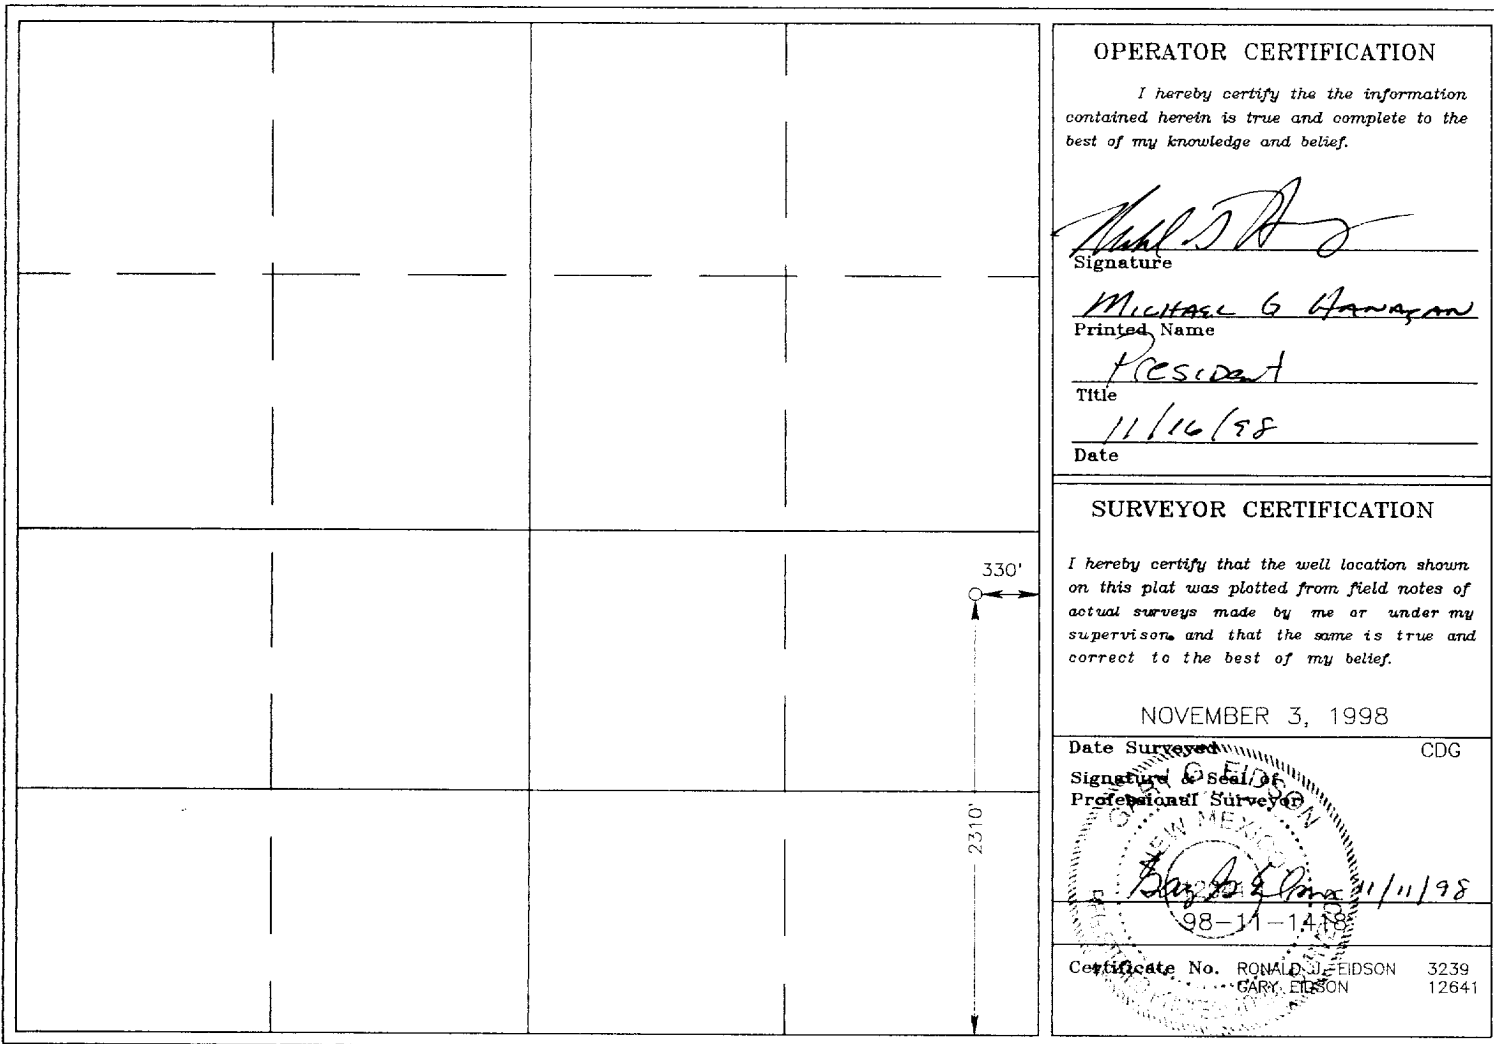 330'
2310'
OPERATOR CERTIFICATION
I hereby certify the the information
contained herein is true and complete to the
best of my knowledge and belief.
Signature
MICHAEL G HANAGAN
Printed Name
President
Title
11/16/98
Date
SURVEYOR CERTIFICATION
I hereby certify that the well location shown
on this plat was plotted from field notes of
actual surveys made by me or under my
supervison, and that the same is true and
correct to the best of my belief.
NOVEMBER 3, 1998
Date Surveyed CDG
Signature & Seal of
Professional Surveyor
GARY G. EIDSON
NEW MEXICO
11/11/98
98-11-1418
Certificate No. RONALD J. EIDSON 3239
GARY EIDSON 12641